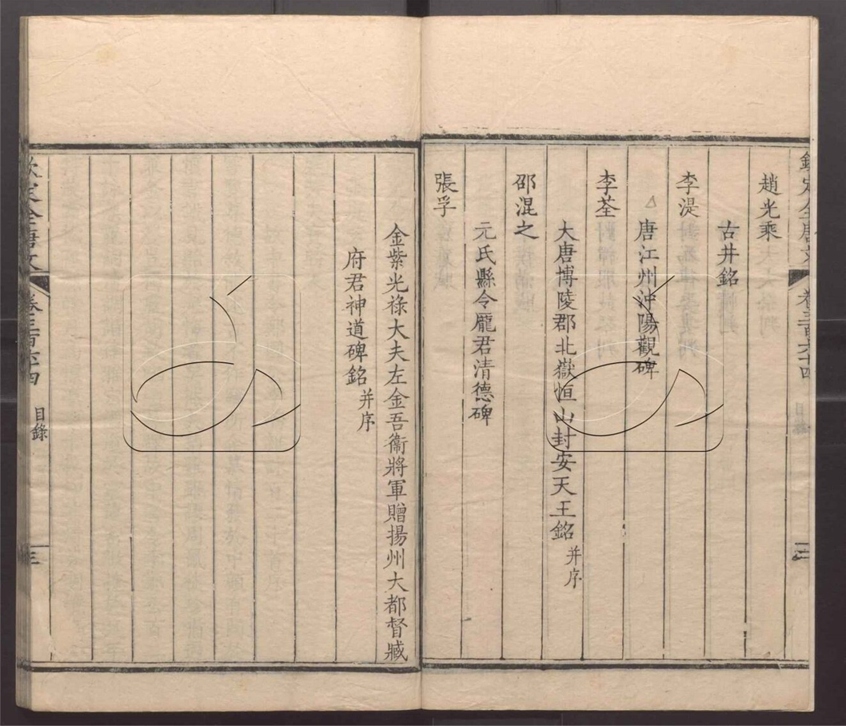 欽定全唐文 卷三百六十四 三
趙光乘
古井銘
李湜
唐江州沖陽觀碑
李荃
大唐博陵郡北嶽恒山封安天王銘并序
邵混之
元氏縣令龐君清德碑
張孚
金紫光祿大夫左金吾衞將軍贈揚州大都督臧
府君神道碑銘并序
欽定全唐文 卷三百六十四 目錄 三